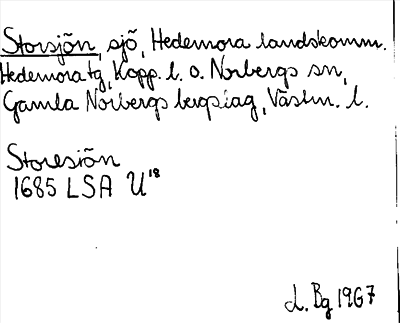 Storsjön, sjö, Hedemora landskomm.
Hedemora tg, Kopp. l. o. Norbergs sn,
Gamla Norbergs bergslag, Västm. l.
Storesiön
1685 LSA U18
L. Bg 1967